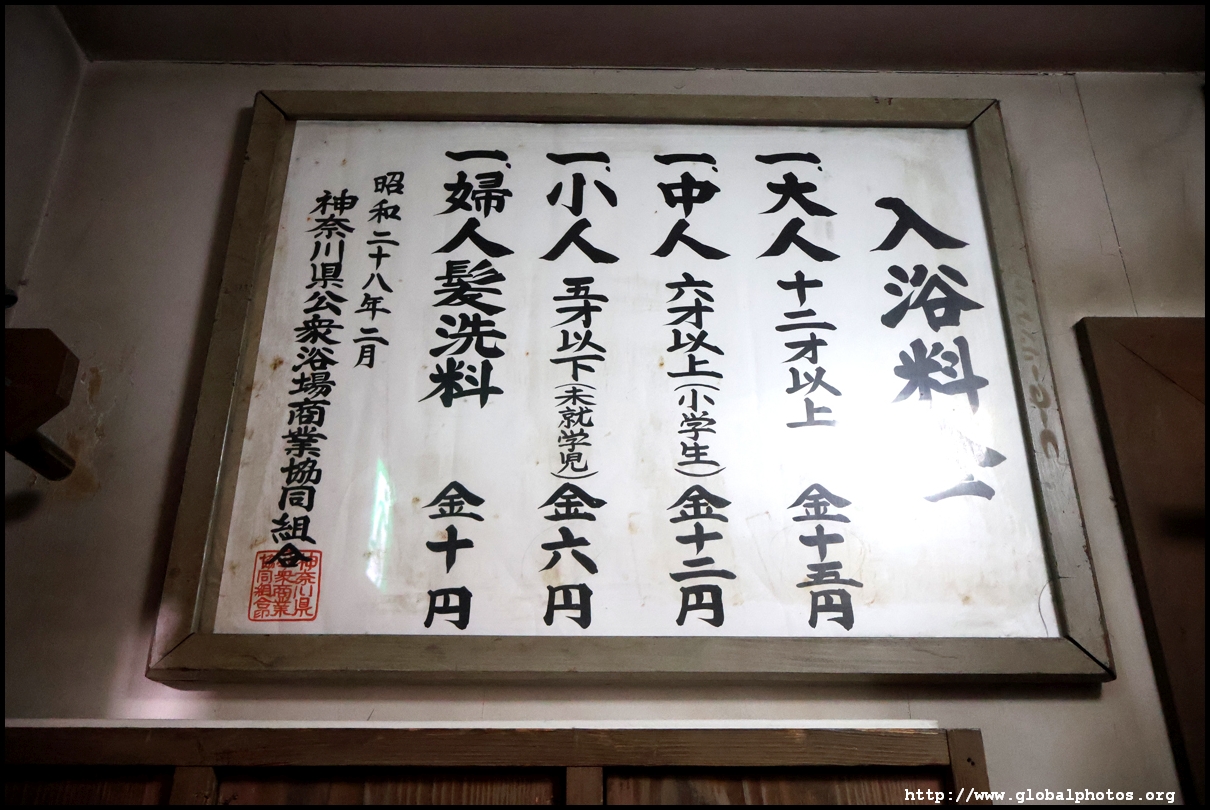 入浴料
一、大人 十二才以上 金十五円
一、中人 六才以上(小学生) 金十二円
一、小人 五才以下(未就学児) 金六円
一、婦人髪洗料 金十円
昭和二十八年二月
神奈川県公衆浴場商業協同組合
神奈川県
衆商業
協同組合印
http://www.globalphotos.org